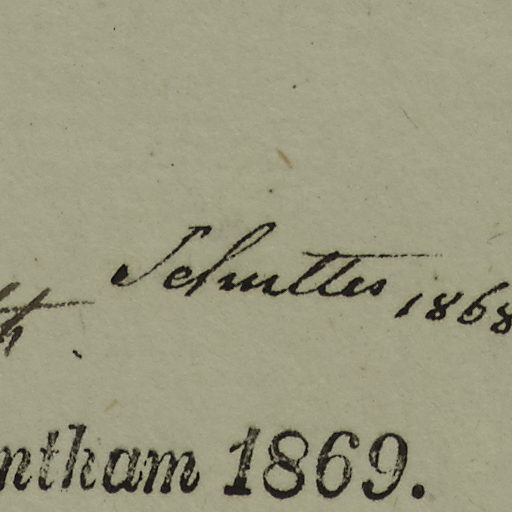 Schuttes 1868
ntham 1869.